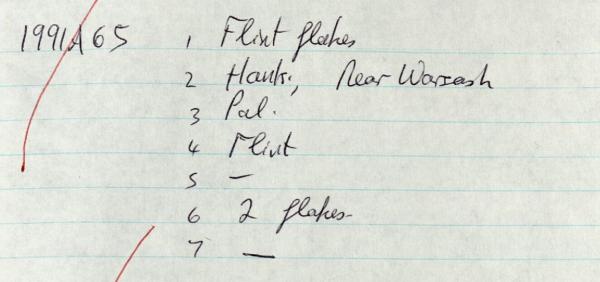 1991A65 1 Flint flakes
2 Hants, Near Warsash
3 Pal.
4 Flint
5 —
6 2 flakes
7 —